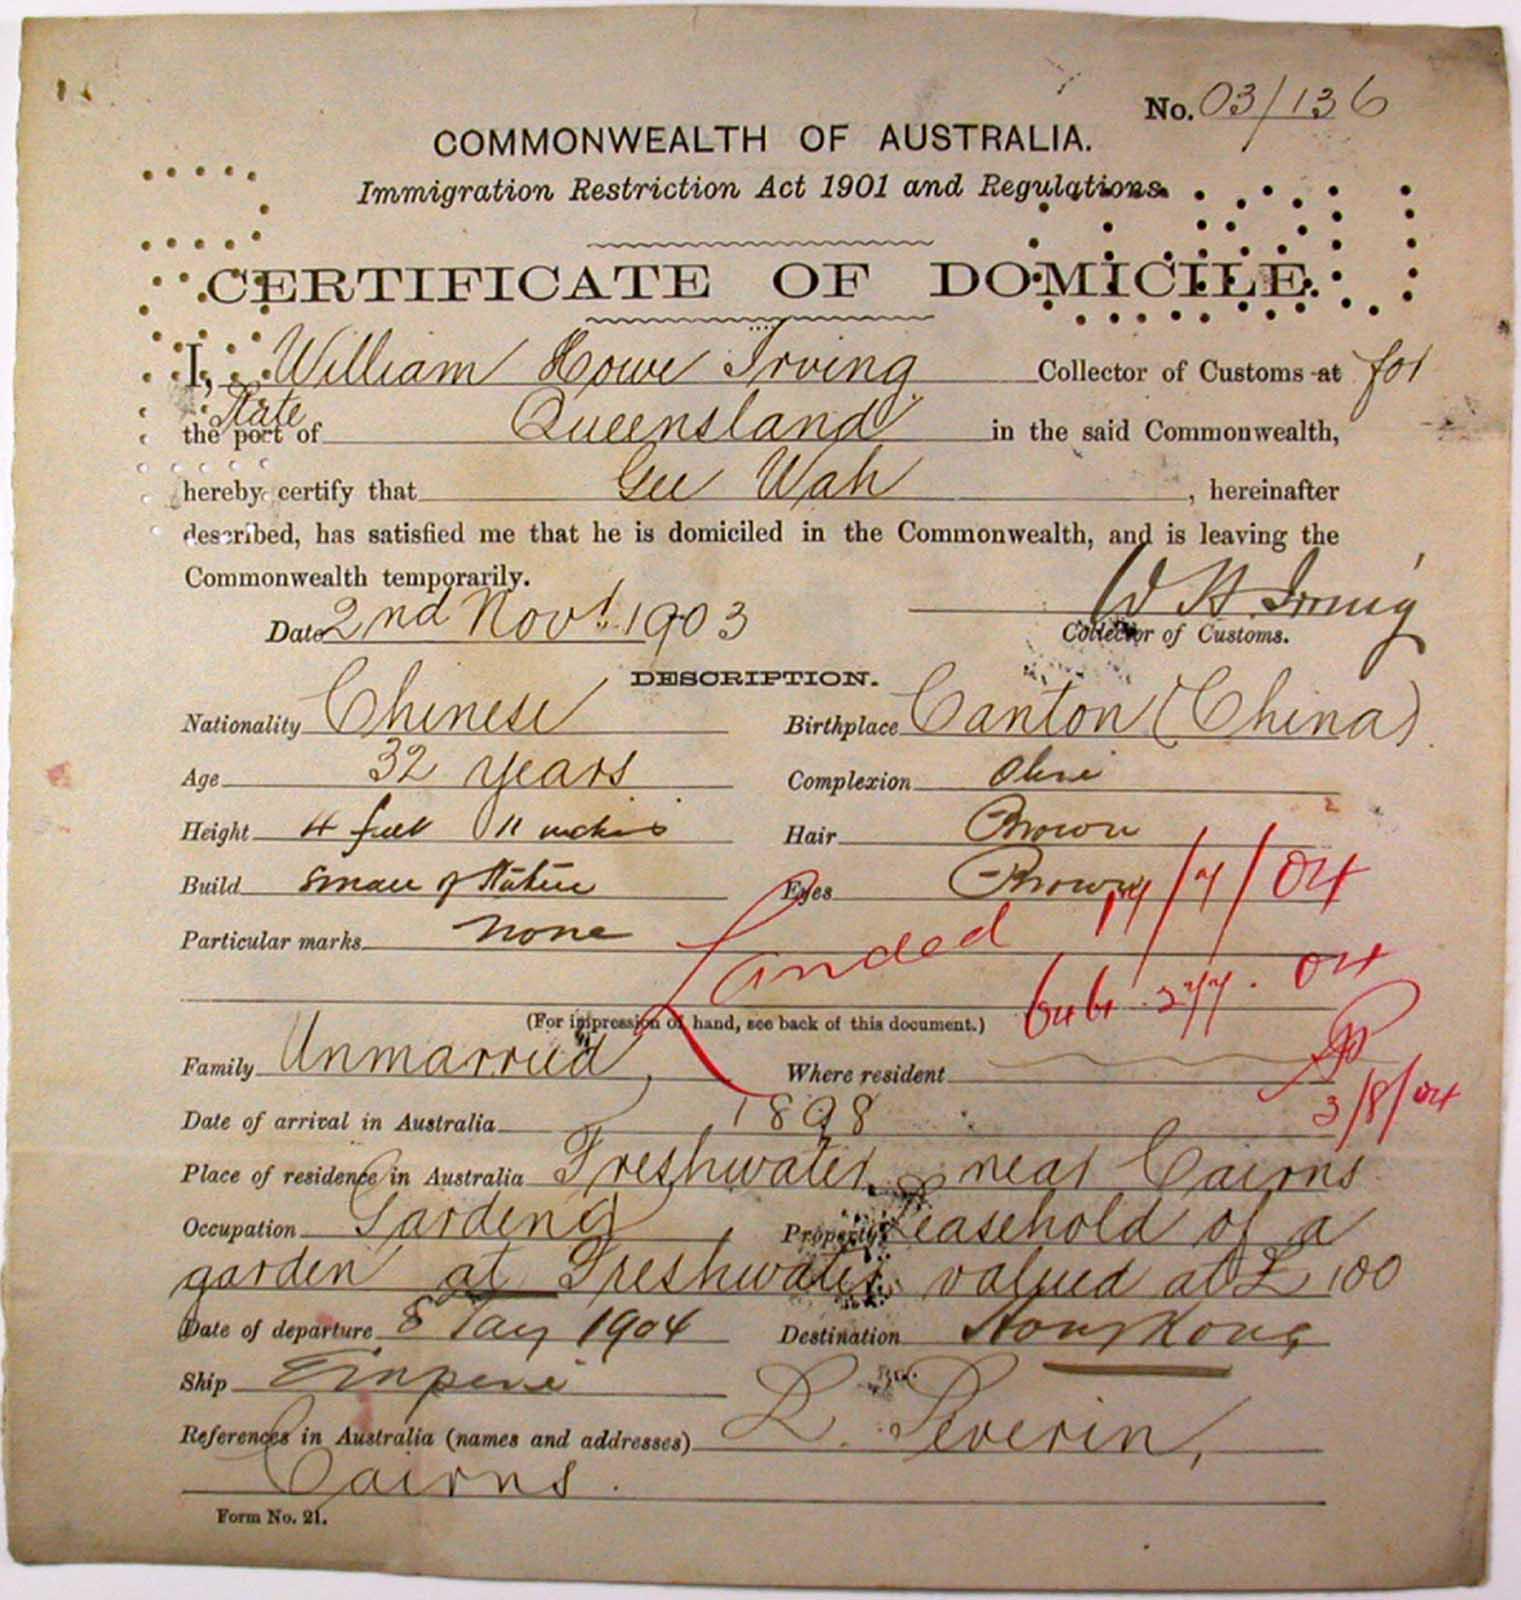 No. 03/136
COMMONWEALTH OF AUSTRALIA.
Immigration Restriction Act 1901 and Regulations.
CERTIFICATE OF DOMICILE.
I, William Howe Irving Collector of Customs at for
State
the port of Queensland in the said Commonwealth,
hereby certify that Gee Wah, hereinafter
described, has satisfied me that he is domiciled in the Commonwealth, and is leaving the
Commonwealth temporarily.
Date 2nd Novr. 1903 W H Irving
Collector of Customs.
DESCRIPTION.
Nationality Chinese Birthplace Canton (China).
Age 32 years Complexion Olive
Height 4 feet 11 inches Hair Brown
Build Small of Stature Eyes Brown
Particular marks None
Landed /7/04
04
(For impression of hand, see back of this document.)
Family Unmarried, Where resident
3/8/04
Date of arrival in Australia 1898
Place of residence in Australia Freshwater near Cairns
Occupation Gardener Property Leasehold of a
garden at Freshwater valued at £100
Date of departure 8 Jany 1904 Destination Hong Kong
Ship Empire
References in Australia (names and addresses) L. Severin,
Cairns.
Form No. 21.